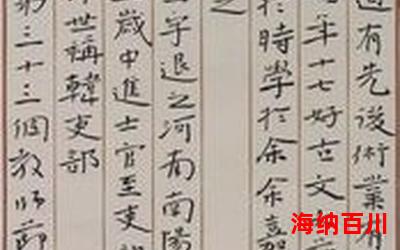 道有先後術業有
年十七好古文
於時學於余余嘉
之
字退之河南南陽
歲中進士官至吏
世稱韓吏部
第三十三個教師節
海纳百川